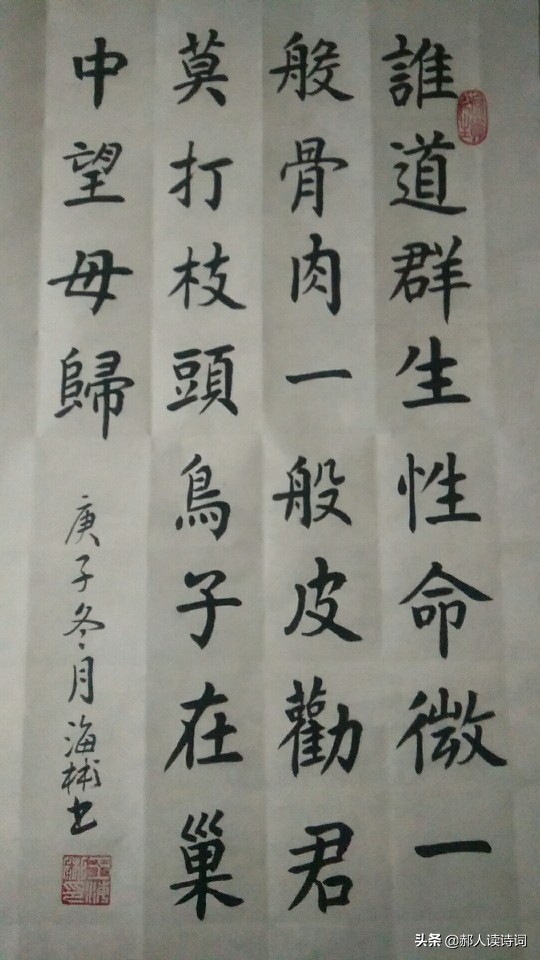 誰道群生性命微一
般骨肉一般皮勸君
莫打枝頭鳥子在巢
中望母歸
庚子冬月海彬书
头条 @郝人读诗词